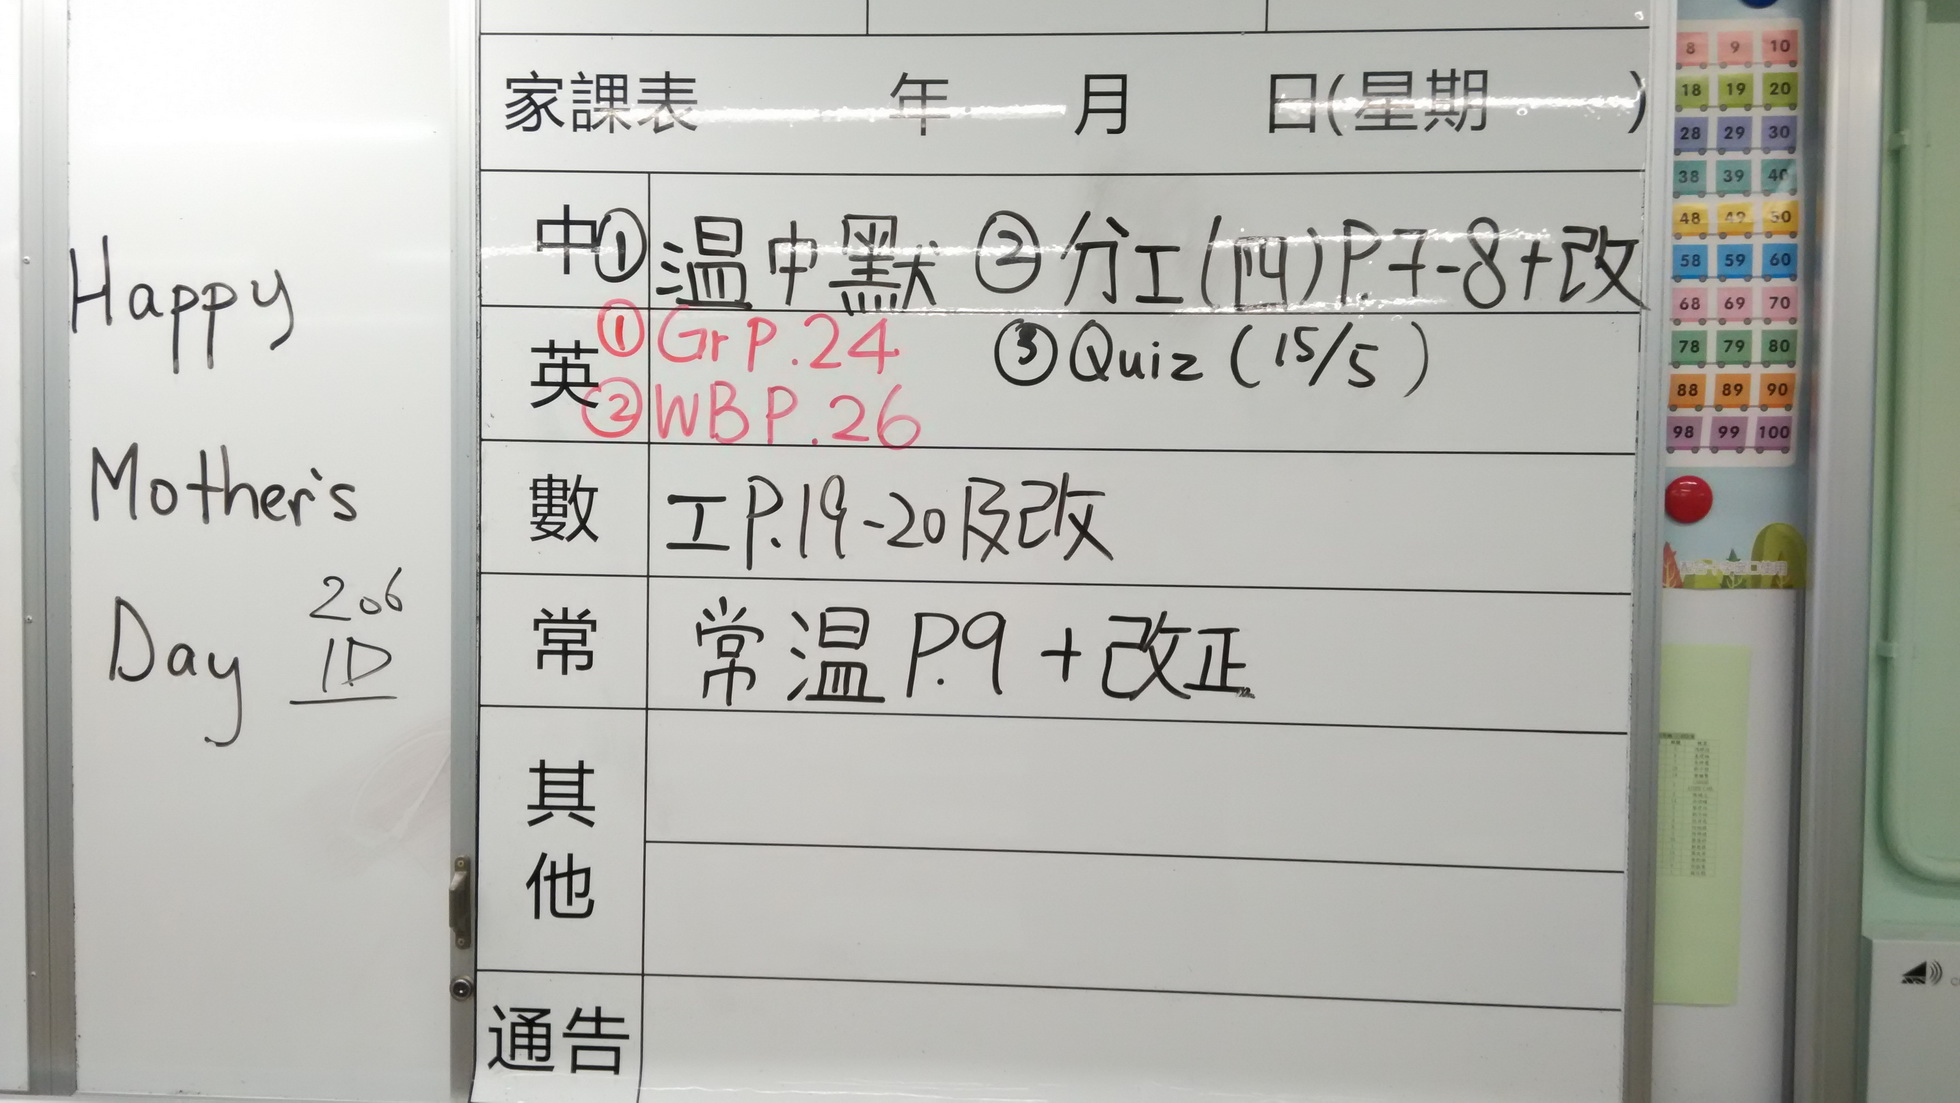 Happy
Mother's
Day
206
1D
家課表 年 月 日(星期 )
中 ① 温中默 ② 分工(四)P.7-8+改
英 ① Gr P.24 ③ Quiz (15/5)
② WB P.26
數 工P.19-20及改
常 常温 P.9 + 改正
其他
通告
8 9 10
18 19 20
28 29 30
38 39 40
48 49 50
58 59 60
68 69 70
78 79 80
88 89 90
98 99 100